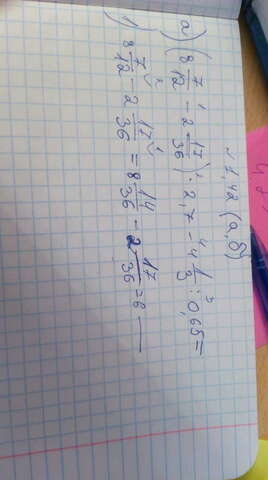 № 1,42 (а,б)
а) (8 7/12 - 2 17/36) : 2,7 - 4 1/3 : 0,65 =
1) 8 7/12 - 2 17/36 = 8 14/36 - 2 17/36 = 6 —